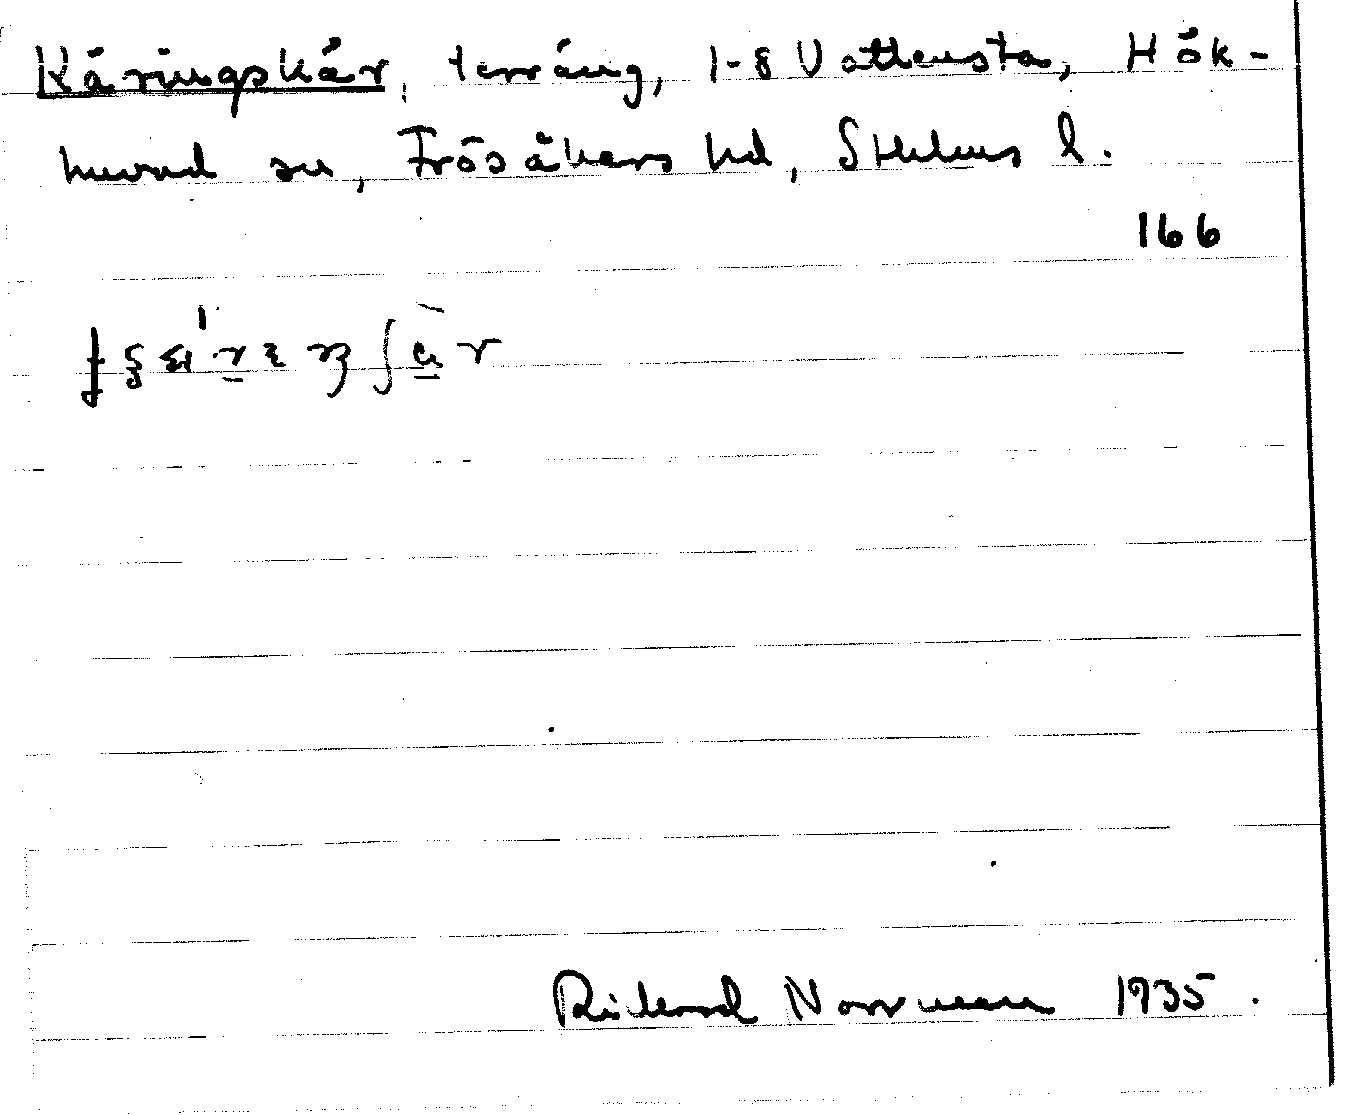 Käringskär, terräng, 1-8 Vattensta, Hök-
huvud sn, Frösåkers hd, Sthlms l.
166
Rickard Norrman 1935.